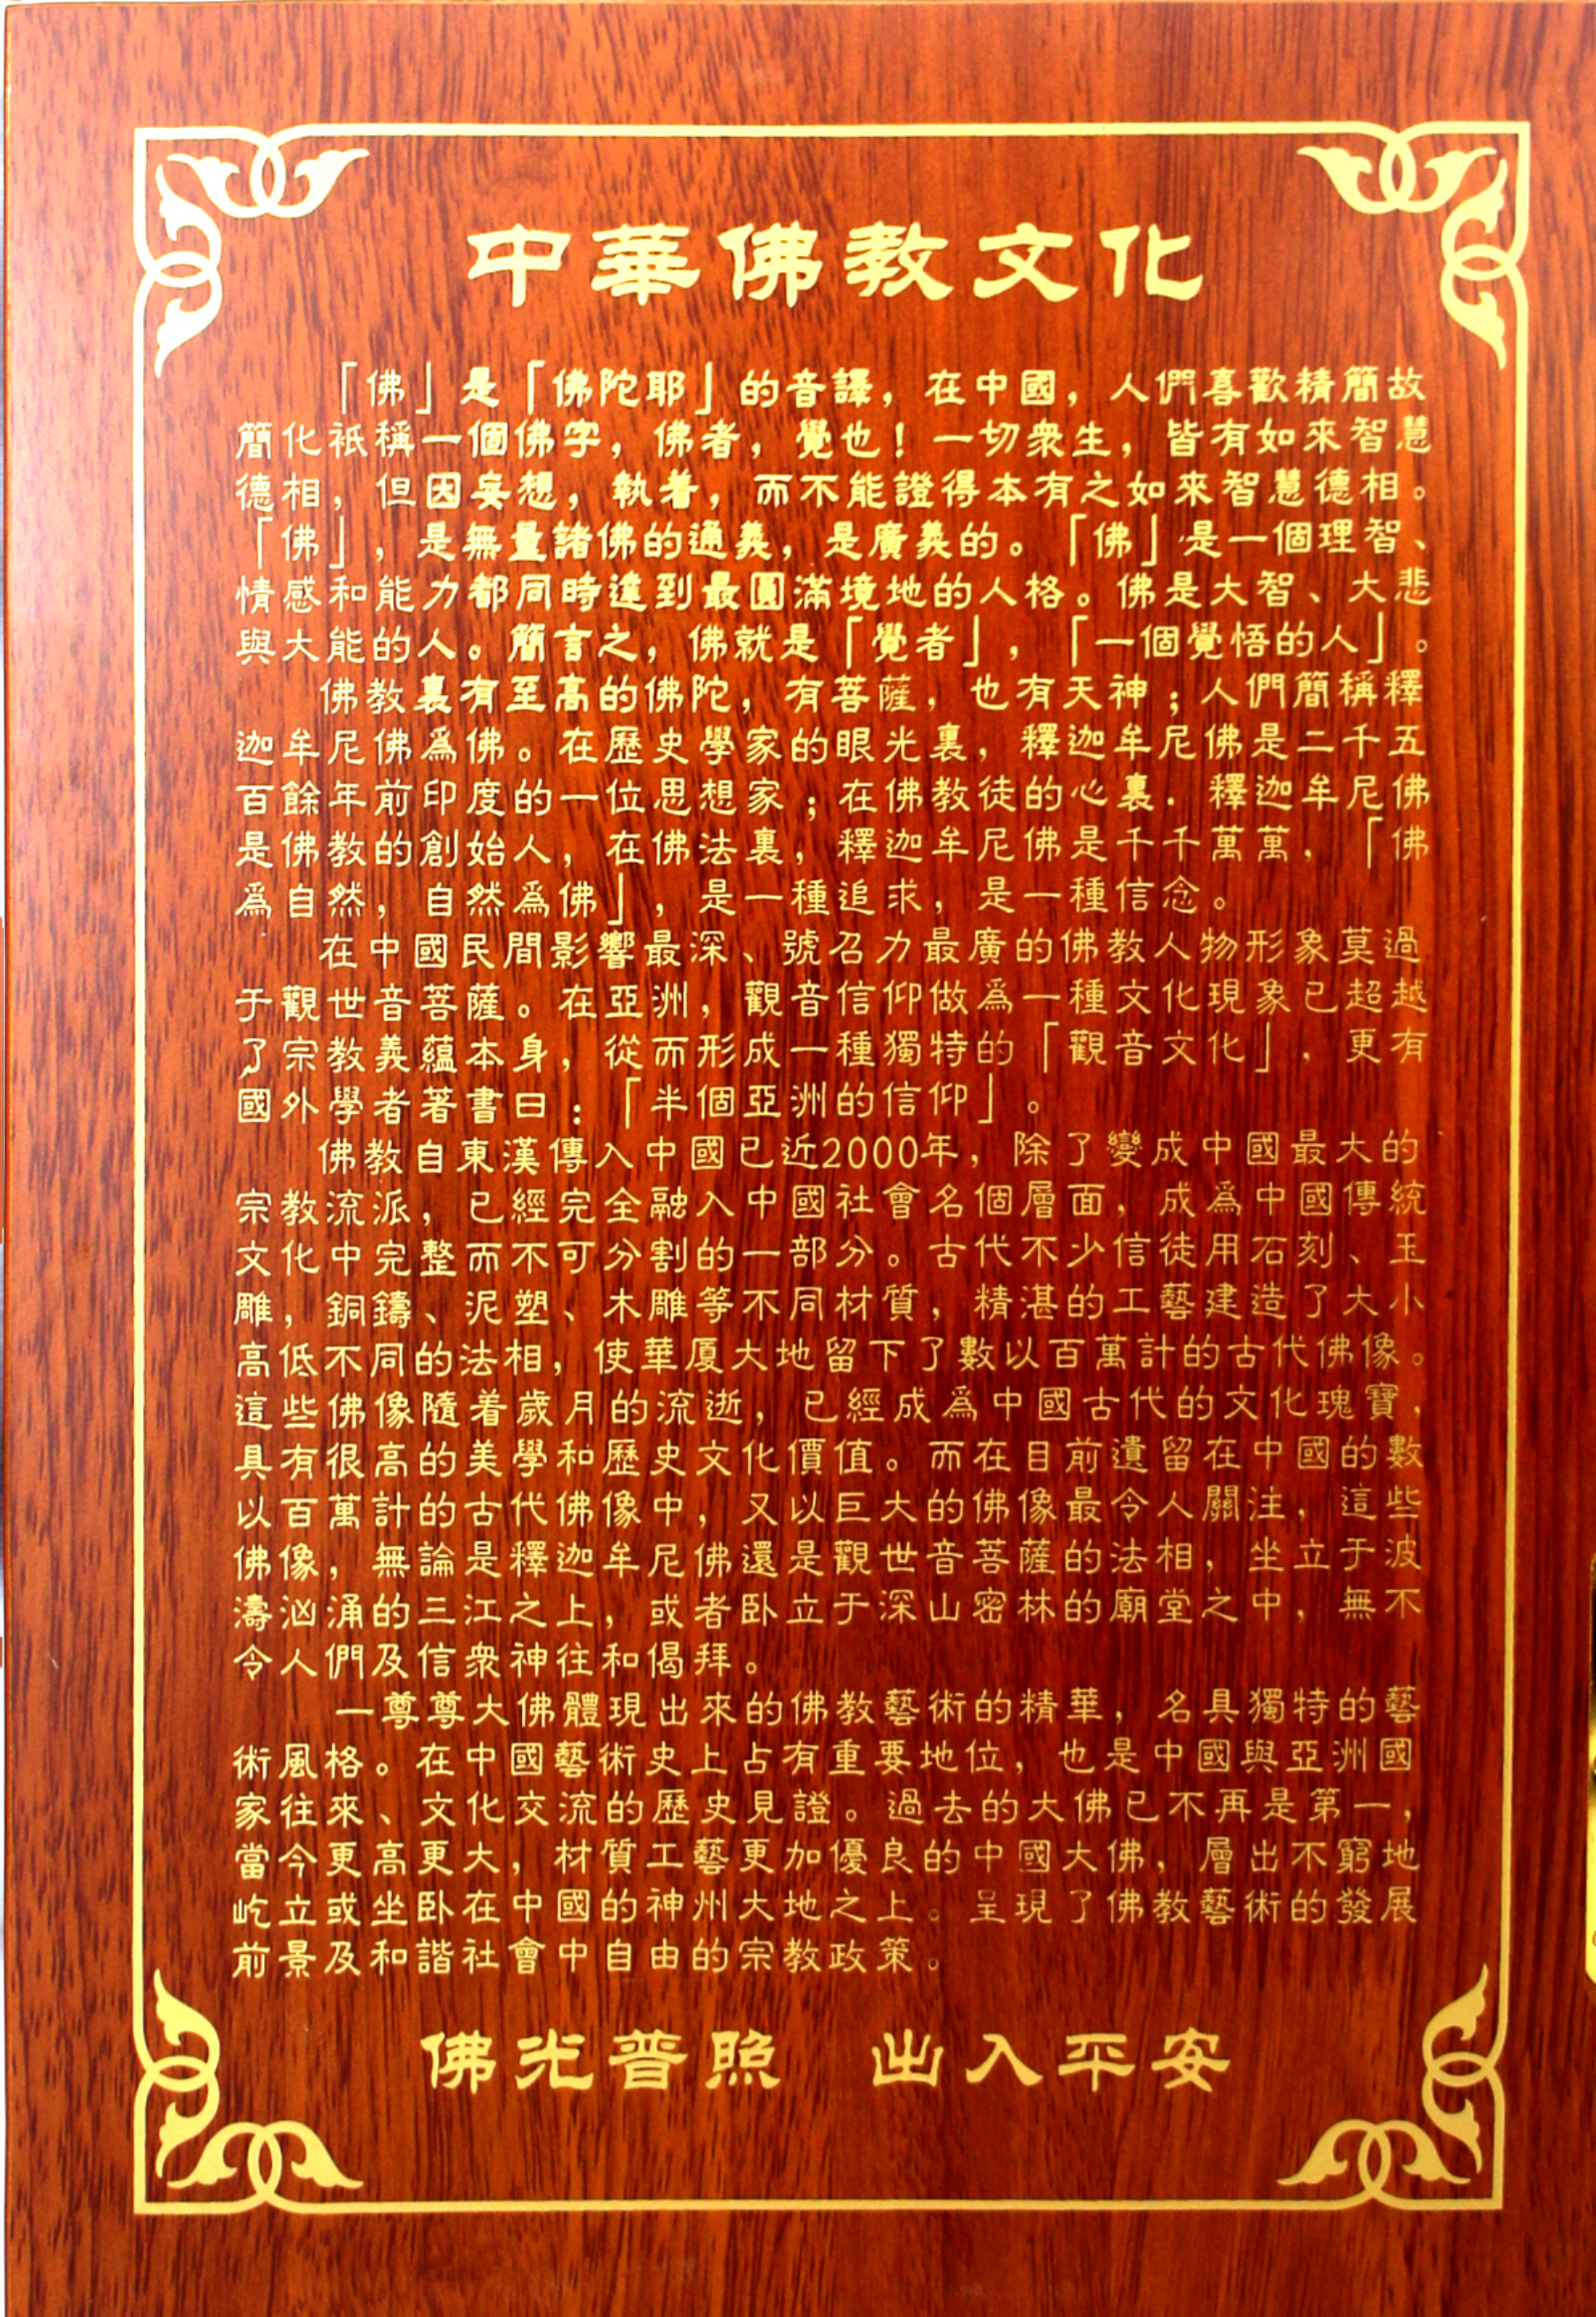 中華佛教文化
「佛」是「佛陀耶」的音譯，在中國，人們喜歡精簡故
簡化衹稱一個佛字，佛者，覺也！一切衆生，皆有如來智慧
德相，但因妄想，執着，而不能證得本有之如來智慧德相。
「佛」，是無量諸佛的通義，是廣義的。「佛」是一個理智、
情感和能力都同時達到最圓滿境地的人格。佛是大智、大悲
與大能的人。簡言之，佛就是「覺者」，「一個覺悟的人」。
佛教裏有至高的佛陀，有菩薩，也有天神；人們簡稱釋
迦牟尼佛爲佛。在歷史學家的眼光裏，釋迦牟尼佛是二千五
百餘年前印度的一位思想家；在佛教徒的心裏．釋迦牟尼佛
是佛教的創始人，在佛法裏，釋迦牟尼佛是千千萬萬，「佛
爲自然，自然爲佛」，是一種追求，是一種信念。
在中國民間影響最深、號召力最廣的佛教人物形象莫過
于觀世音菩薩。在亞洲，觀音信仰做爲一種文化現象已超越
了宗教義蘊本身，從而形成一種獨特的「觀音文化」，更有
國外學者著書曰：「半個亞洲的信仰」。
佛教自東漢傳入中國已近2000年，除了變成中國最大的
宗教流派，已經完全融入中國社會名個層面，成爲中國傳統
文化中完整而不可分割的一部分。古代不少信徒用石刻、玉
雕，銅鑄、泥塑、木雕等不同材質，精湛的工藝建造了大小
高低不同的法相，使華厦大地留下了數以百萬計的古代佛像。
這些佛像隨着歲月的流逝，已經成爲中國古代的文化瑰寶，
具有很高的美學和歷史文化價值。而在目前遺留在中國的數
以百萬計的古代佛像中，又以巨大的佛像最令人關注，這些
佛像，無論是釋迦牟尼佛還是觀世音菩薩的法相，坐立于波
濤汹涌的三江之上，或者卧立于深山密林的廟堂之中，無不
令人們及信衆神往和偈拜。
一尊尊大佛體現出來的佛教藝術的精華，名具獨特的藝
術風格。在中國藝術史上占有重要地位，也是中國與亞洲國
家往來、文化交流的歷史見證。過去的大佛已不再是第一，
當今更高更大，材質工藝更加優良的中國大佛，層出不窮地
屹立或坐卧在中國的神州大地之上。呈現了佛教藝術的發展
前景及和諧社會中自由的宗教政策。
佛光普照　出入平安